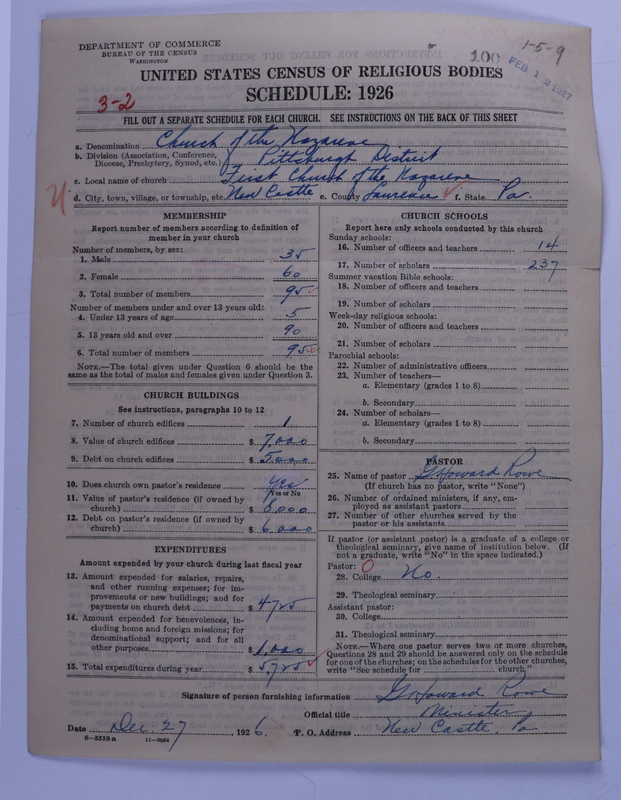 DEPARTMENT OF COMMERCE
BUREAU OF THE CENSUS
WASHINGTON
100
1-5-9
FEB 12 1927
UNITED STATES CENSUS OF RELIGIOUS BODIES
3-2
SCHEDULE: 1926
FILL OUT A SEPARATE SCHEDULE FOR EACH CHURCH. SEE INSTRUCTIONS ON THE BACK OF THIS SHEET
a. Denomination Church of the Nazarene
b. Division (Association, Conference, Diocese, Presbytery, Synod, etc.) Pittsburgh District
c. Local name of church First Church of the Nazarene
d. City, town, village, or township, etc. New Castle e. County Lawrence f. State Pa.
MEMBERSHIP
Report number of members according to definition of
member in your church
Number of members, by sex:
1. Male 35
2. Female 60
3. Total number of members 95
Number of members under and over 13 years old:
4. Under 13 years of age 5
5. 13 years old and over 90
6. Total number of members 95
NOTE.—The total given under Question 6 should be
same as the total of males and females given under Question 3.
CHURCH BUILDINGS
See instructions, paragraphs 10 to 12
7. Number of church edifices 1
8. Value of church edifices $ 7,000
9. Debt on church edifices $ 5000
10. Does church own pastor's residence yes
Yes or No
11. Value of pastor's residence (if owned by
church) $ 8,000
12. Debt on pastor's residence (if owned by
church) $ 6,000
EXPENDITURES
Amount expended by your church during last fiscal year
13. Amount expended for salaries, repairs,
and other running expenses; for im-
provements or new buildings; and for
payments on church debt $ 4725
14. Amount expended for benevolences, in-
cluding home and foreign missions; for
denominational support; and for all
other purposes $ 1,000
15. Total expenditures during year $ 5725
CHURCH SCHOOLS
Report here only schools conducted by this church
Sunday schools:
16. Number of officers and teachers 14
17. Number of scholars 237
Summer vacation Bible schools:
18. Number of officers and teachers
19. Number of scholars
Week-day religious schools:
20. Number of officers and teachers
21. Number of scholars
Parochial schools:
22. Number of administrative officers
23. Number of teachers—
a. Elementary (grades 1 to 8)
b. Secondary
24. Number of scholars—
a. Elementary (grades 1 to 8)
b. Secondary
PASTOR
25. Name of pastor G. Howard Rowe
(If church has no pastor, write "None")
26. Number of ordained ministers, if any, em-
ployed as assistant pastors
27. Number of other churches served by the
pastor or his assistants
If pastor (or assistant pastor) is a graduate of a college or
theological seminary, give name of institution below. (If
not a graduate, write "No" in the space indicated.)
Pastor: O
28. College No.
29. Theological seminary
Assistant pastor:
30. College
31. Theological seminary
NOTE.—Where one pastor serves two or more churches,
Questions 28 and 29 should be answered only on the schedule
for one of the churches; on the schedules for the other churches,
write "See schedule for church."
Signature of person furnishing information G. Howard Rowe
Official title Minister
Date Dec. 27, 1926. P. O. Address New Castle, Pa
8-5518a 11-9054